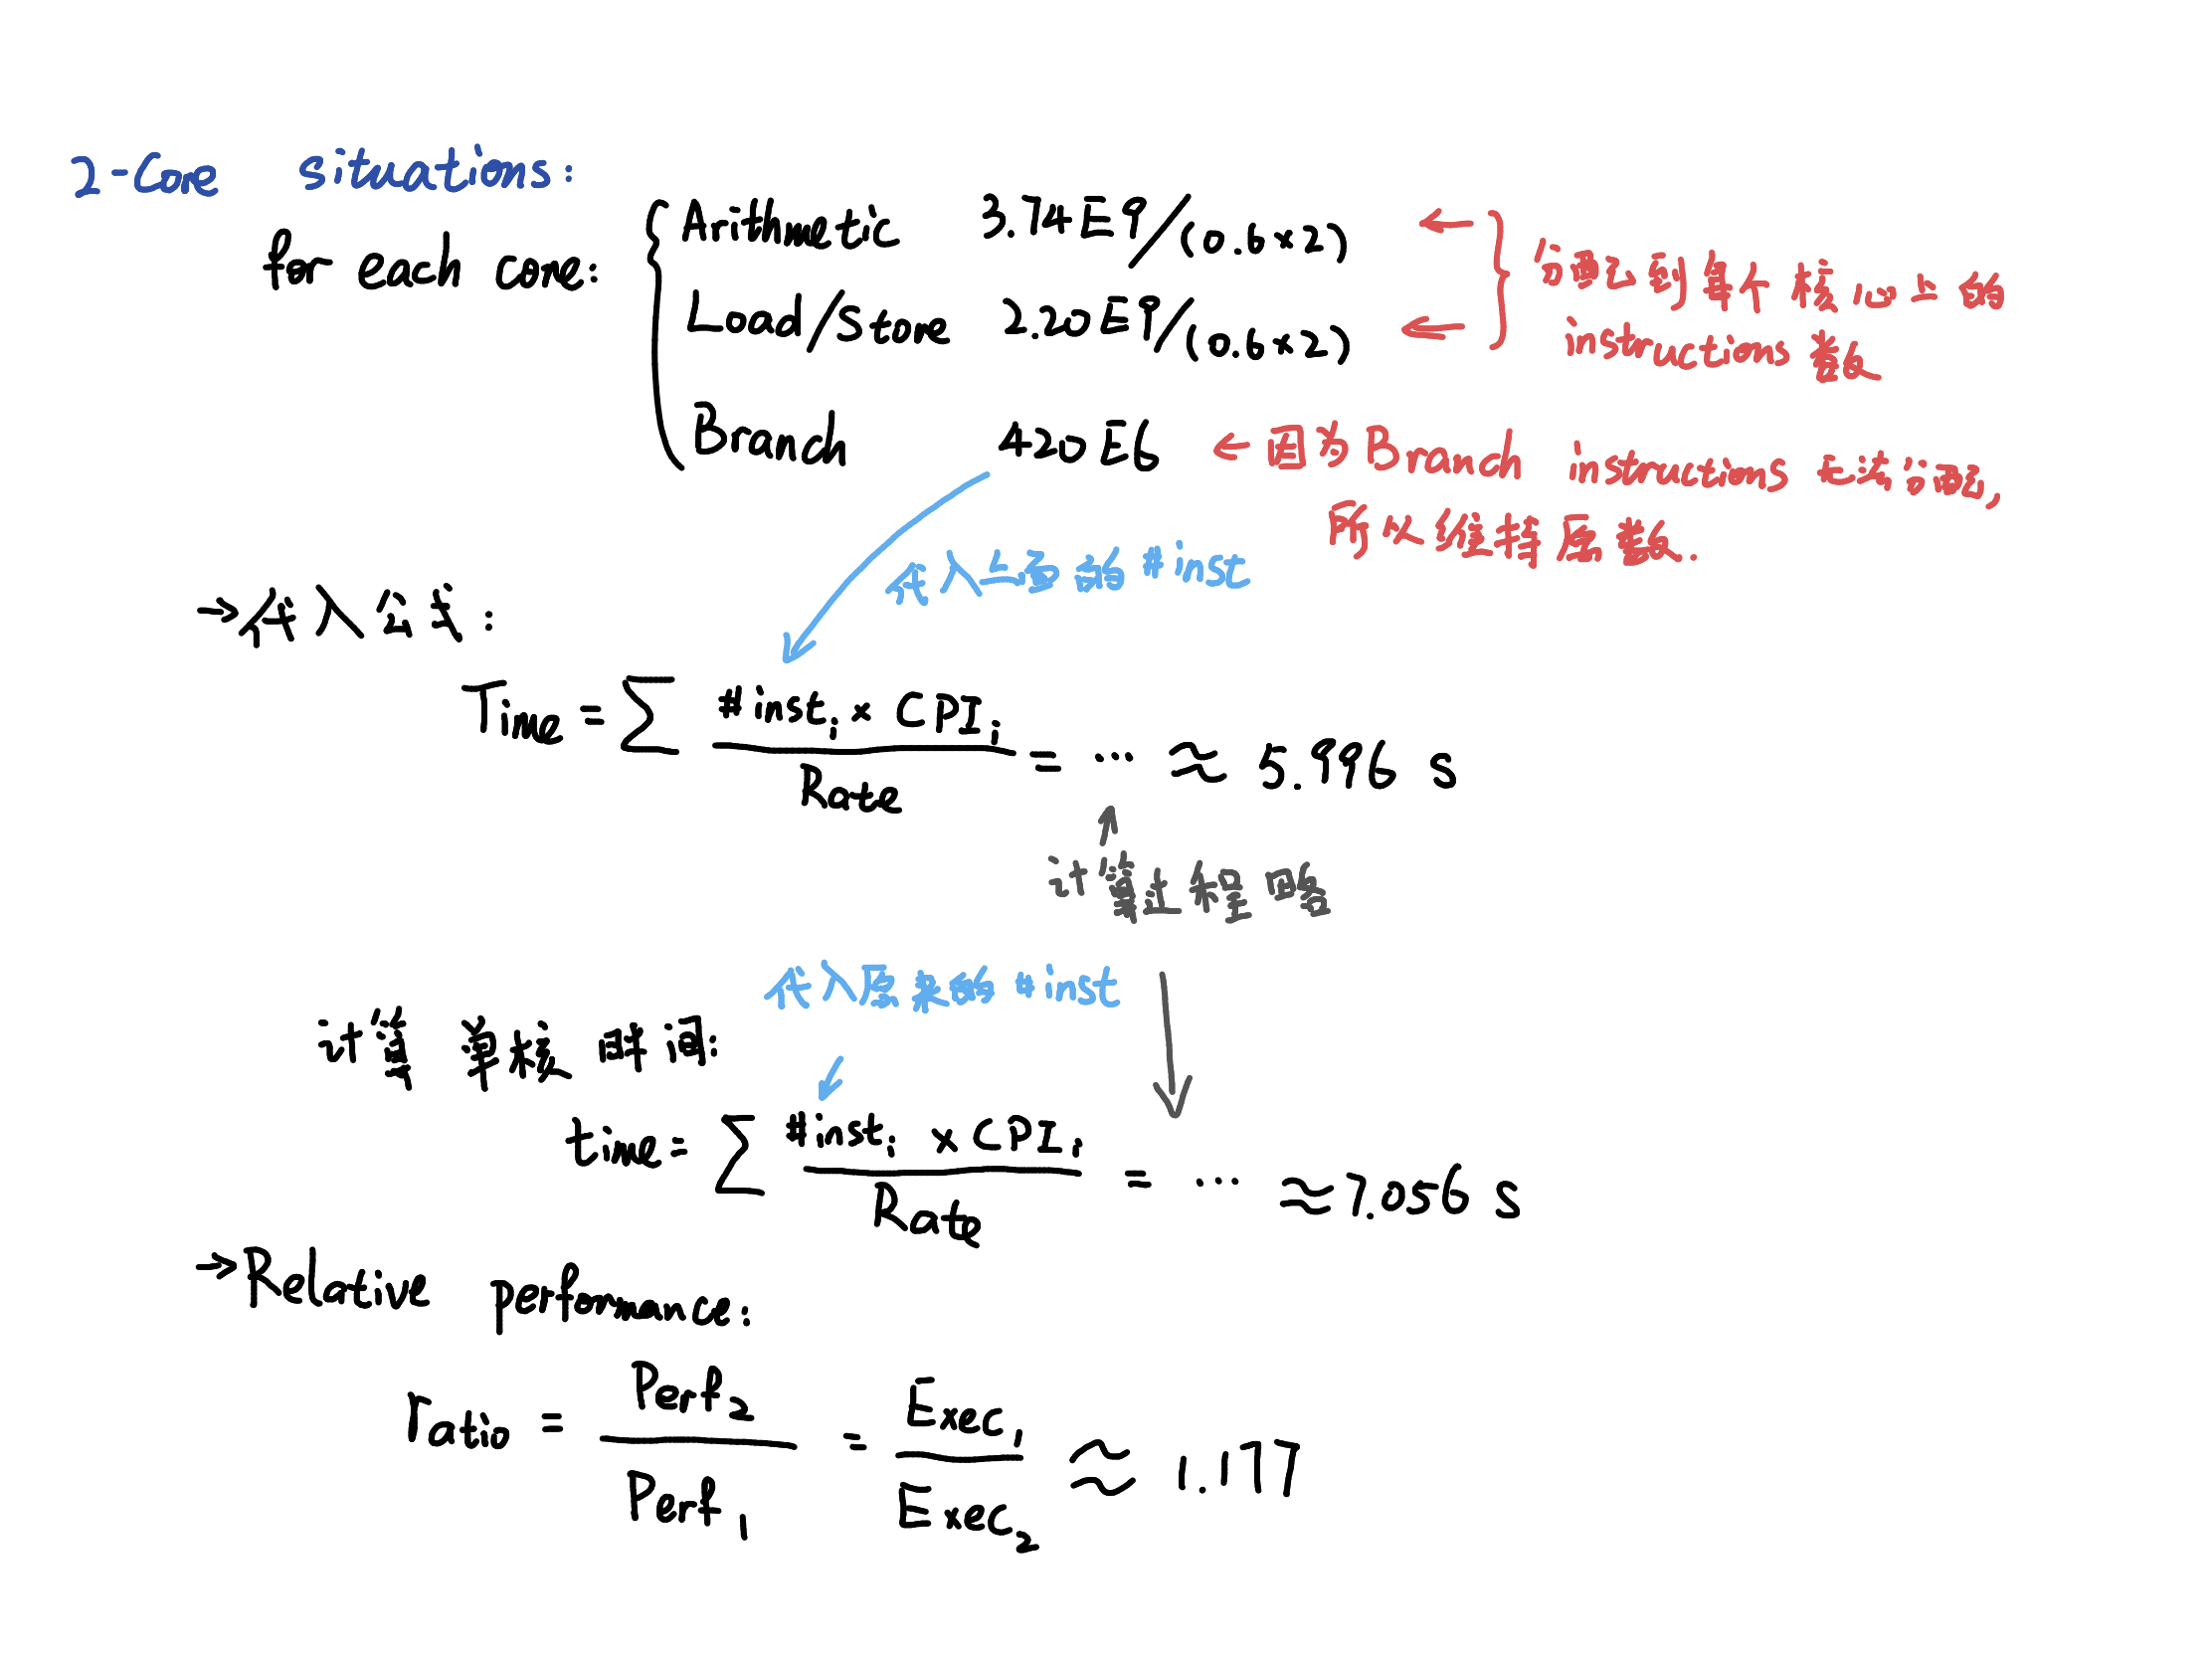 2-Core situations:
for each core:
Arithmetic 3.74E9/(0.6×2) ←
Load/Store 2.20E9/(0.6×2) ←
分配到每个核心上的
instructions 数
Branch 420E6 ← 因为Branch instructions 无法分配,
所以维持原数.
代入上面的 #inst
→代入公式:
Time = ∑ #inst_i × CPI_i / Rate = … ≈ 5.996 s
计算过程略
代入原来的 #inst
计算 单核 时间:
time = ∑ #inst_i × CPI_i / Rate = … ≈ 7.056 s
→Relative performance:
ratio = Perf_2 / Perf_1 = Exec_1 / Exec_2 ≈ 1.177